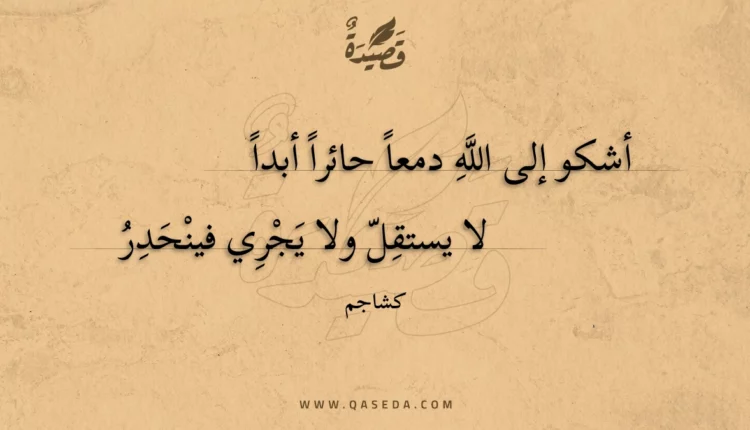 قَصِيْدَةٌ
أشكو إلى اللَّهِ دمعاً حائراً أبداً
لا يستقِلّ ولا يَجْرِي فينْحَدِرُ
كشاجم
WWW.QASEDA.COM